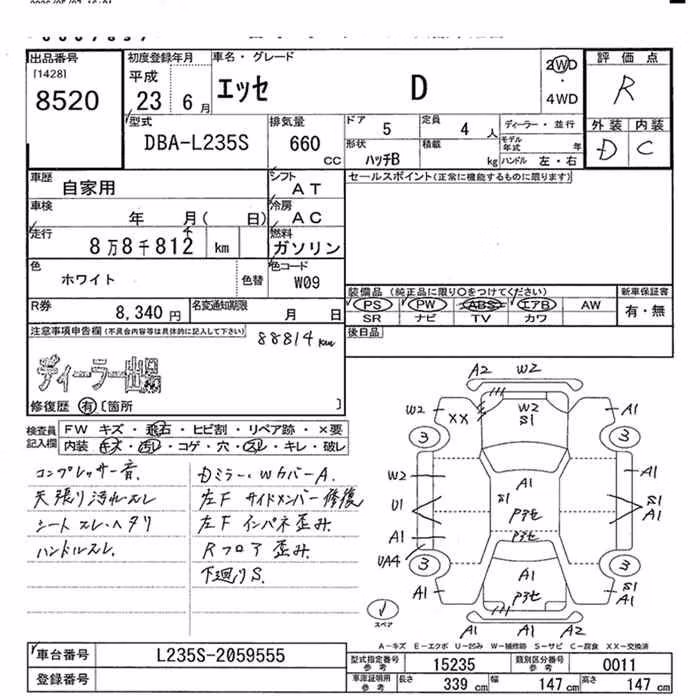 出品番号
[1428]
8520
初度登録年月
平成
23 6 月
車名・グレード
エッセ D
2WD
・
4WD
評価点
R
外装 内装
D C
型式
DBA-L235S
排気量
660
CC
ドア 5
定員 4 人
ディーラー・並行
形状
ハッチB
積載
kg
モデル年式 年
ハンドル 左・右
車歴
自家用
シフト
AT
セールスポイント(正常に機能するものに限ります)
車検
年 月( 日)
冷房
AC
走行
8万8千812 km
4
燃料
ガソリン
色
ホワイト
色替
色コード
W09
装備品(純正品に限り〇をつけてください)
PS PW ABS エアB AW
SR ナビ TV カワ
新車保証書
有・無
R券
8,340 円
名変通知期限
月 日
後日品
注意事項申告欄(不具合内容等は具体的に記入して下さい)
88814 km
ディーラー出品
修復歴 有 [箇所 ]
検査員記入欄
FW キズ・飛石・ヒビ割・リペア跡・×要
内装 キズ・汚れ・コゲ・穴・スレ・キレ・破レ
コンプレッサー音.
天張り汚れスレ
シートスレ.ヘタリ
ハンドルスレ.
Dミラー.WカバーA.
左F サイドメンバー修復
左F インパネ歪み.
Rフロア歪み.
下廻りS.
A2 W2
W2 XX W2 S1 A1
3 3
W2 A1 A1
U1 S1 P3セ S1 A1
A1 P3セ
UA4
3 3
A1 A1 P3セ A1
A1 A1 A2
スペア
A-キズ E-エクボ U-凹み W-補修跡 S-サビ C-腐食 XX-交換済
車台番号
L235S-2059555
登録番号
型式指定番号
参考
15235
類別区分番号
参考
0011
車庫証明用
参考
長さ 339 cm
幅 147 cm
高さ 147 cm